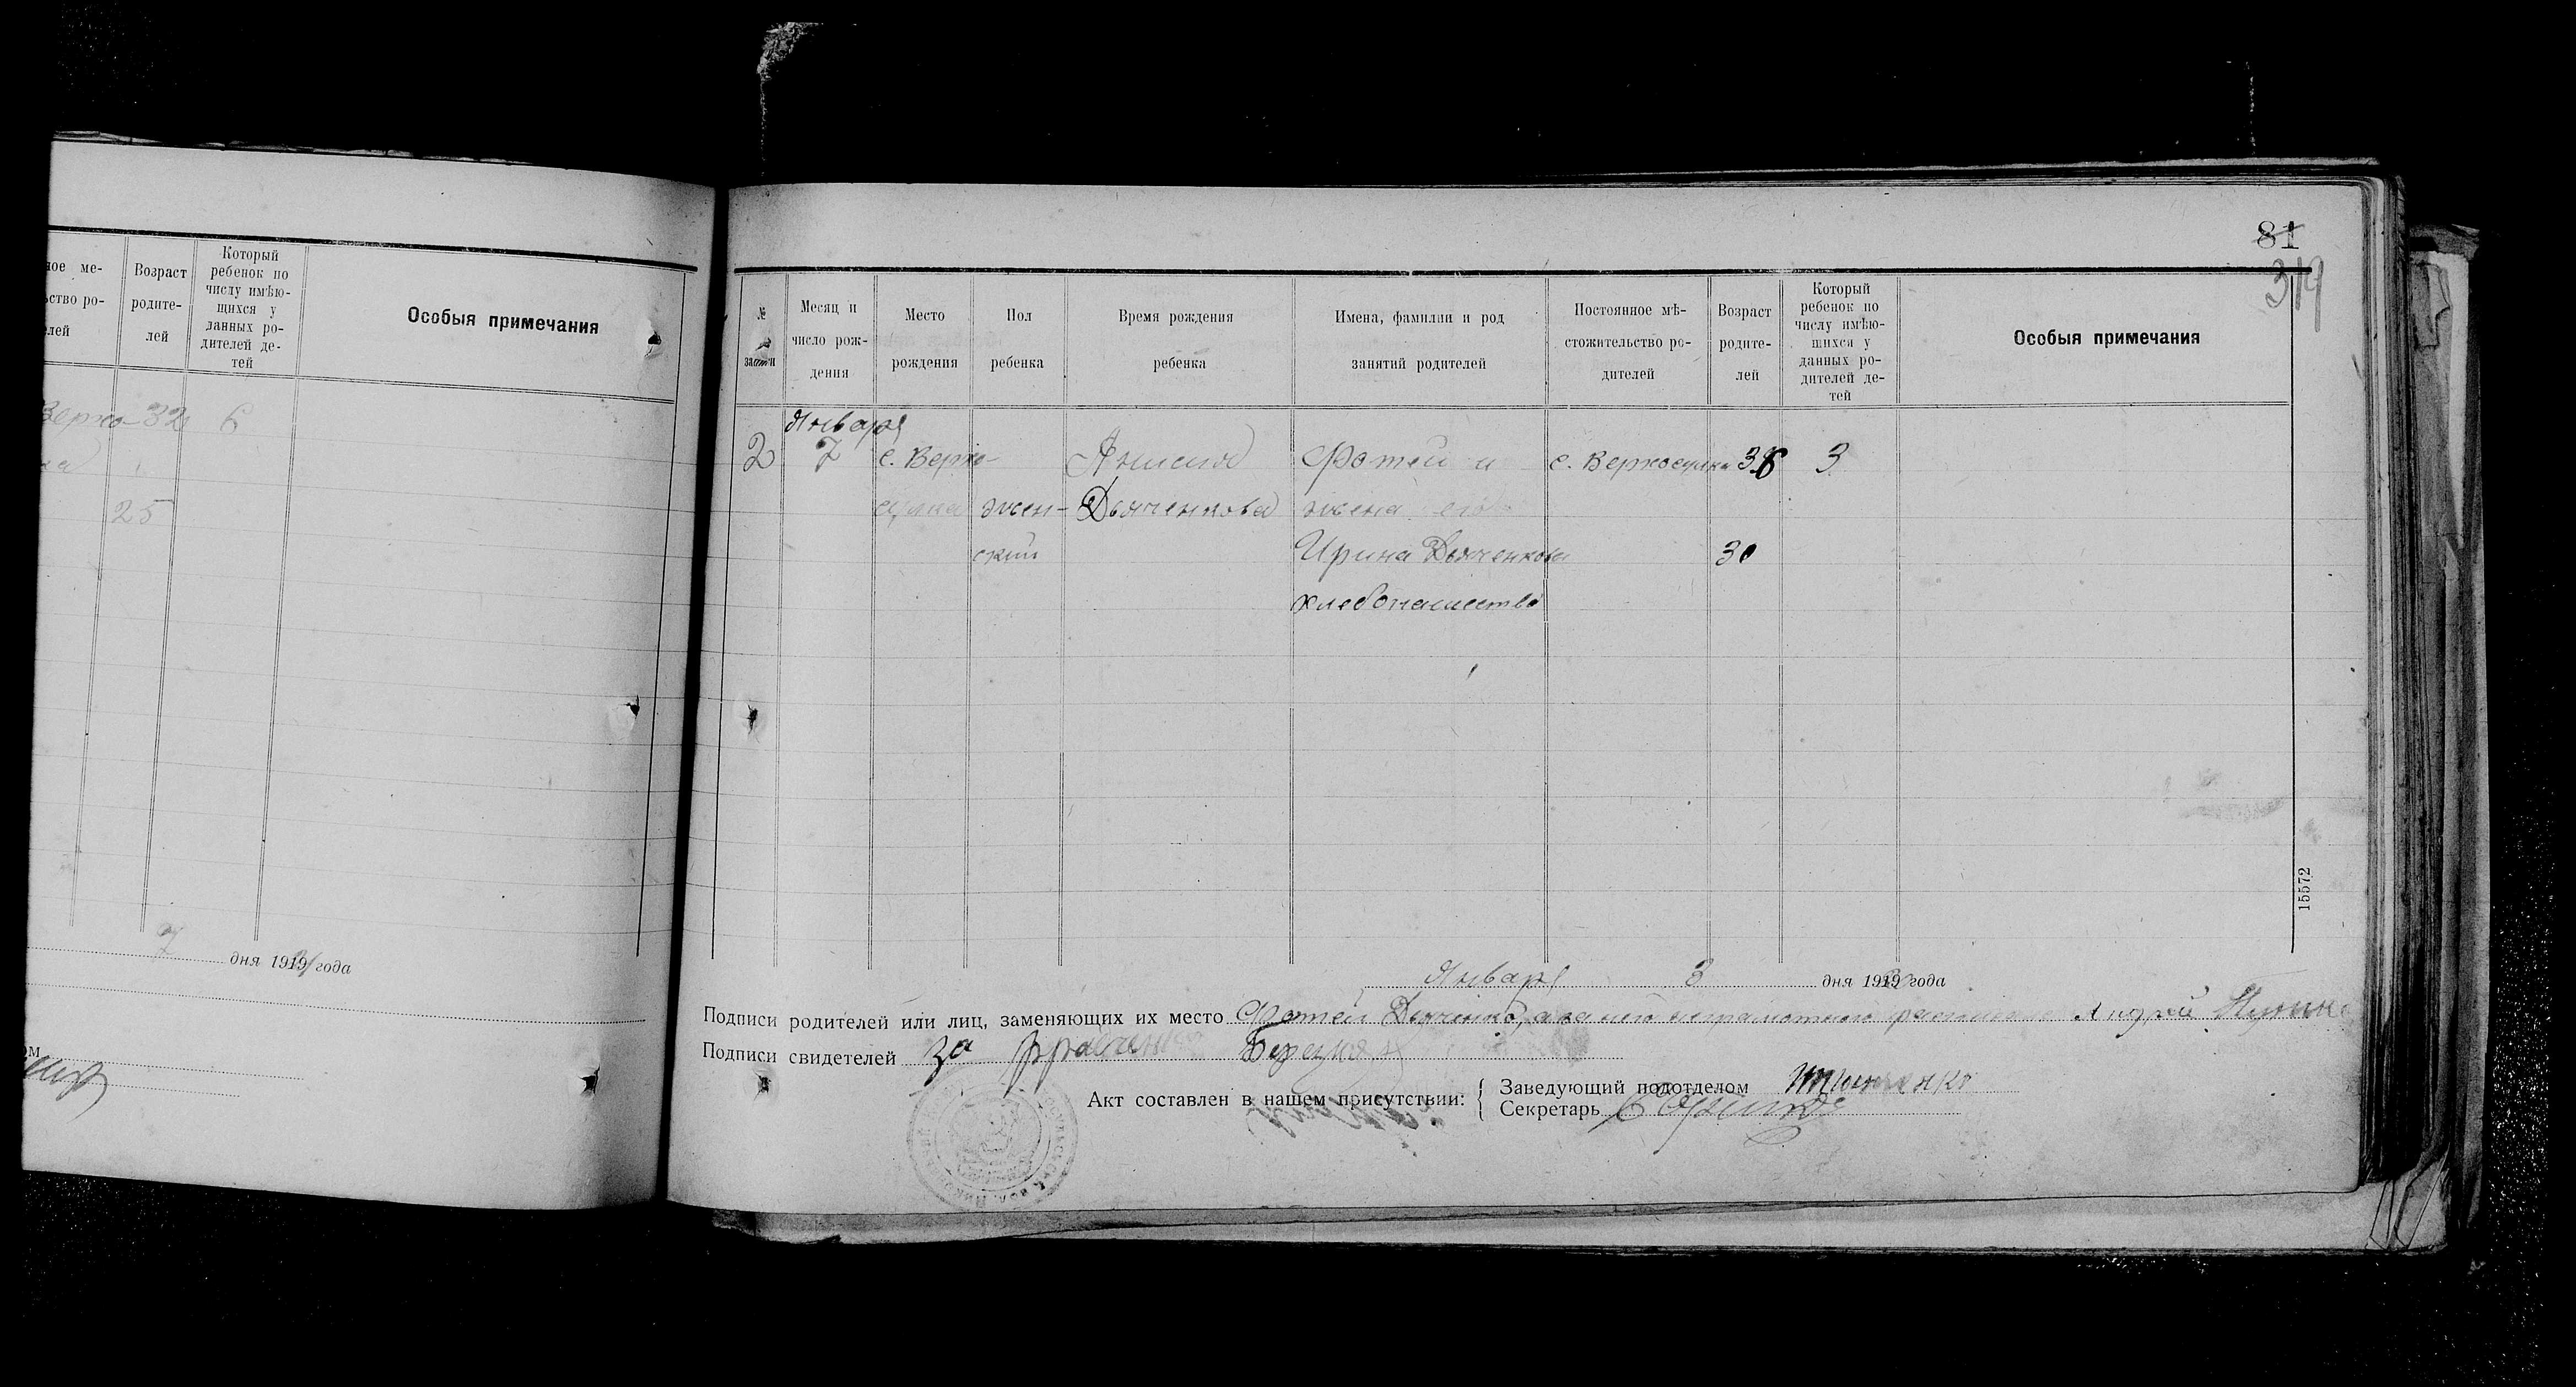 ное ме-
ьство ро-
лей
Возраст
родите-
лей
Который
ребенок по
числу имѣю-
щихся у
данных ро-
дителей де-
тей
Особыя примечания
Верхо-
32
6
25
7 дня 1919 года
81
319
№
записи
Месяц и
число рож-
дения
Место
рождения
Пол
ребенка
Время рождения
ребенка
Имена, фамилии и род
занятий родителей
Постоянное мѣ-
стожительство ро-
дителей
Возраст
родите-
лей
Который
ребенок по
числу имѣю-
щихся у
данных ро-
дителей де-
тей
Особыя примечания
Января
2 7 с. Верхо- Анисия Фотей и с. Верхосулка 38 3
сулка жен- Дьяченкова жена его
ский Ирина Дьяченкова 30
хлебопашество
15572
Января 8 дня 1919 года
Подписи родителей или лиц, заменяющих их место Фотей Дьяченко, а за него неграмотного Андрей
Подписи свидетелей за
Акт составлен в нашем присутствии:
Заведующий подотделом
Секретарь